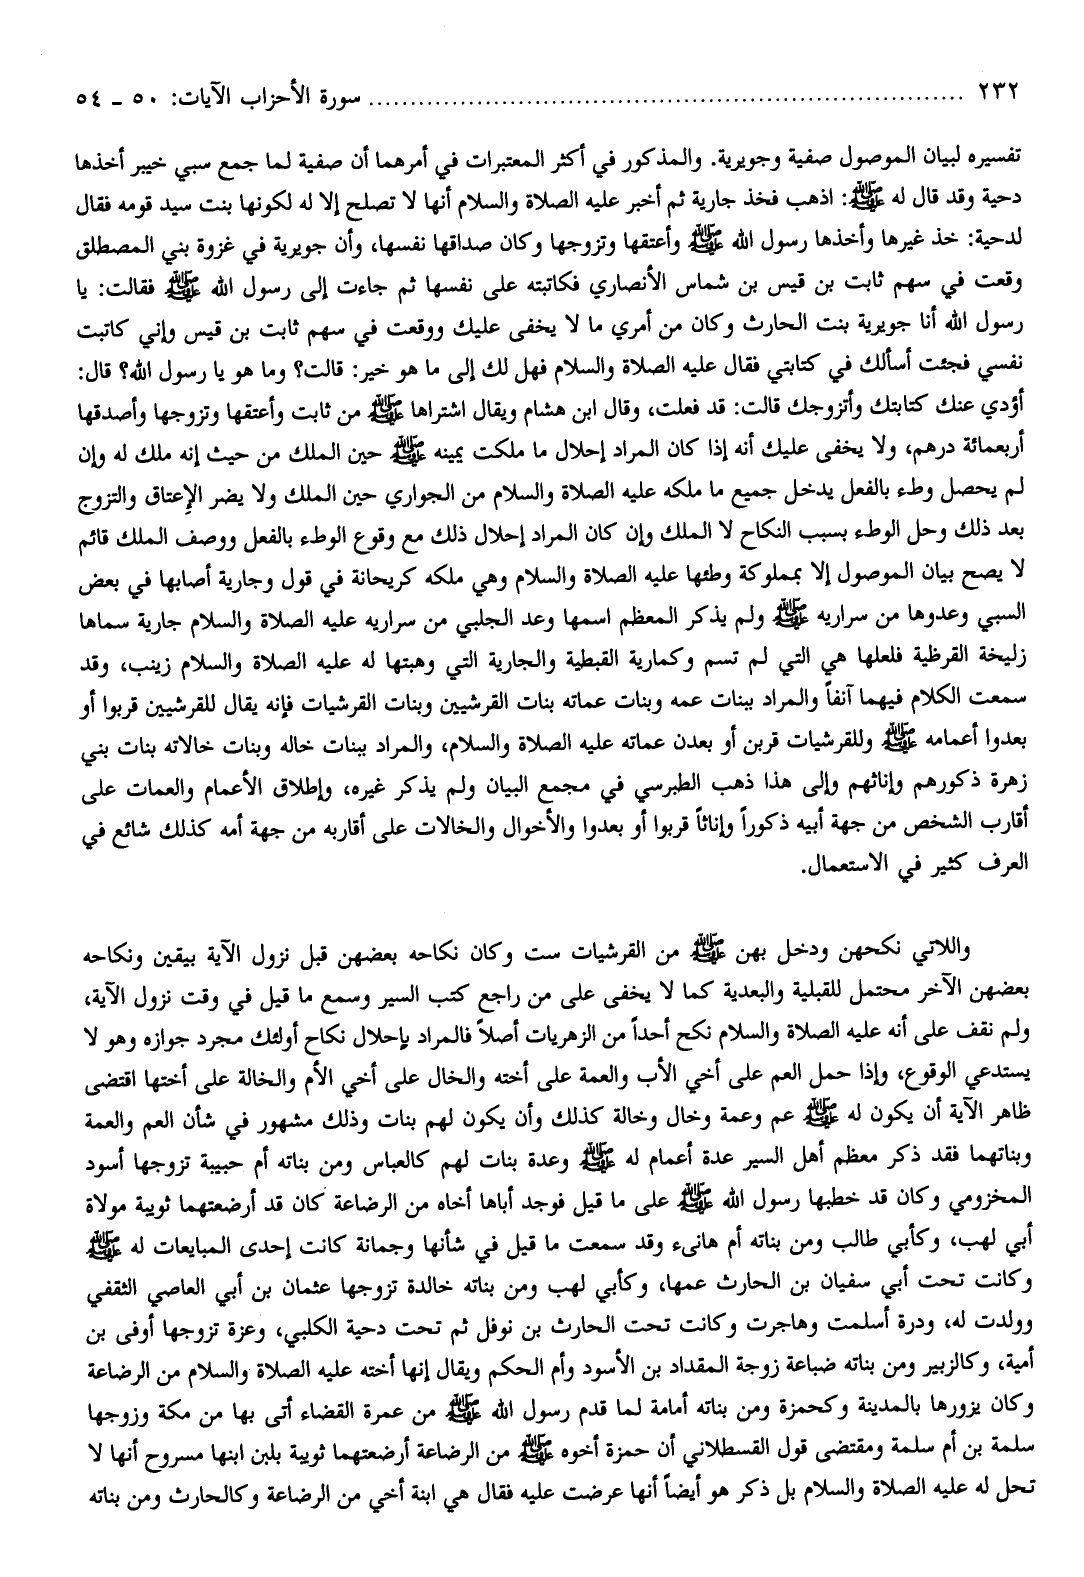 ٢٣٢ ........................................................................ سورة الأحزاب الآيات: ٥٠ ـ ٥٤
تفسيره لبيان الموصول صفية وجويرية. والمذكور في أكثر المعتبرات في أمرهما أن صفية لما جمع سبي خيبر أخذها
دحية وقد قال له ﷺ: اذهب فخذ جارية ثم أخبر عليه الصلاة والسلام أنها لا تصلح إلا له لكونها بنت سيد قومه فقال
لدحية: خذ غيرها وأخذها رسول الله ﷺ وأعتقها وتزوجها وكان صداقها نفسها، وأن جويرية في غزوة بني المصطلق
وقعت في سهم ثابت بن قيس بن شماس الأنصاري فكاتبته على نفسها ثم جاءت إلى رسول الله ﷺ فقالت: يا
رسول الله أنا جويرية بنت الحارث وكان من أمري ما لا يخفى عليك ووقعت في سهم ثابت بن قيس وإني كاتبت
نفسي فجئت أسألك في كتابتي فقال عليه الصلاة والسلام فهل لك إلى ما هو خير: قالت؟ وما هو يا رسول الله؟ قال:
أؤدي عنك كتابتك وأتزوجك قالت: قد فعلت، وقال ابن هشام ويقال اشتراها ﷺ من ثابت وأعتقها وتزوجها وأصدقها
أربعمائة درهم، ولا يخفى عليك أنه إذا كان المراد إحلال ما ملكت يمينه ﷺ حين الملك من حيث إنه ملك له وإن
لم يحصل وطء بالفعل يدخل جميع ما ملكه عليه الصلاة والسلام من الجواري حين الملك ولا يضر الإعتاق والتزوج
بعد ذلك وحل الوطء بسبب النكاح لا الملك وإن كان المراد إحلال ذلك مع وقوع الوطء بالفعل ووصف الملك قائم
لا يصح بيان الموصول إلا بمملوكة وطئها عليه الصلاة والسلام وهي ملكه كريحانة في قول وجارية أصابها في بعض
السبي وعدوها من سراريه ﷺ ولم يذكر المعظم اسمها وعد الجلبي من سراريه عليه الصلاة والسلام جارية سماها
زليخة القرظية فلعلها هي التي لم تسم وكمارية القبطية والجارية التي وهبتها له عليه الصلاة والسلام زينب، وقد
سمعت الكلام فيهما آنفاً والمراد ببنات عمه وبنات عماته بنات القرشيين وبنات القرشيات فإنه يقال للقرشيين قربوا أو
بعدوا أعمامه ﷺ وللقرشيات قربن أو بعدن عماته عليه الصلاة والسلام، والمراد ببنات خاله وبنات خالاته بنات بني
زهرة ذكورهم وإناثهم وإلى هذا ذهب الطبرسي في مجمع البيان ولم يذكر غيره، وإطلاق الأعمام والعمات على
أقارب الشخص من جهة أبيه ذكوراً وإناثاً قربوا أو بعدوا والأخوال والخالات على أقاربه من جهة أمه كذلك شائع في
العرف كثير في الاستعمال.
واللاتي نكحهن ودخل بهن ﷺ من القرشيات ست وكان نكاحه بعضهن قبل نزول الآية بيقين ونكاحه
بعضهن الآخر محتمل للقبلية والبعدية كما لا يخفى على من راجع كتب السير وسمع ما قيل في وقت نزول الآية،
ولم نقف على أنه عليه الصلاة والسلام نكح أحداً من الزهريات أصلاً فالمراد بإحلال نكاح أولئك مجرد جوازه وهو لا
يستدعي الوقوع، وإذا حمل العم على أخي الأب والعمة على أخته والخال على أخي الأم والخالة على أختها اقتضى
ظاهر الآية أن يكون له ﷺ عم وعمة وخال وخالة كذلك وأن يكون لهم بنات وذلك مشهور في شأن العم والعمة
وبناتهما فقد ذكر معظم أهل السير عدة أعمام له ﷺ وعدة بنات لهم كالعباس ومن بناته أم حبيبة تزوجها أسود
المخزومي وكان قد خطبها رسول الله ﷺ على ما قيل فوجد أباها أخاه من الرضاعة كان قد أرضعتهما ثويبة مولاة
أبي لهب، وكأبي طالب ومن بناته أم هانىء وقد سمعت ما قيل في شأنها وجمانة كانت إحدى المبايعات له ﷺ
وكانت تحت أبي سفيان بن الحارث عمها، وكأبي لهب ومن بناته خالدة تزوجها عثمان بن أبي العاصي الثقفي
وولدت له، ودرة أسلمت وهاجرت وكانت تحت الحارث بن نوفل ثم تحت دحية الكلبي، وعزة تزوجها أوفى بن
أمية، وكالزبير ومن بناته ضباعة زوجة المقداد بن الأسود وأم الحكم ويقال إنها أخته عليه الصلاة والسلام من الرضاعة
وكان يزورها بالمدينة وكحمزة ومن بناته أمامة لما قدم رسول الله ﷺ من عمرة القضاء أتى بها من مكة وزوجها
سلمة بن أم سلمة ومقتضى قول القسطلاني أن حمزة أخوه ﷺ من الرضاعة أرضعتهما ثويبة بلبن ابنها مسروح أنها لا
تحل له عليه الصلاة والسلام بل ذكر هو أيضاً أنها عرضت عليه فقال هي ابنة أخي من الرضاعة وكالحارث ومن بناته